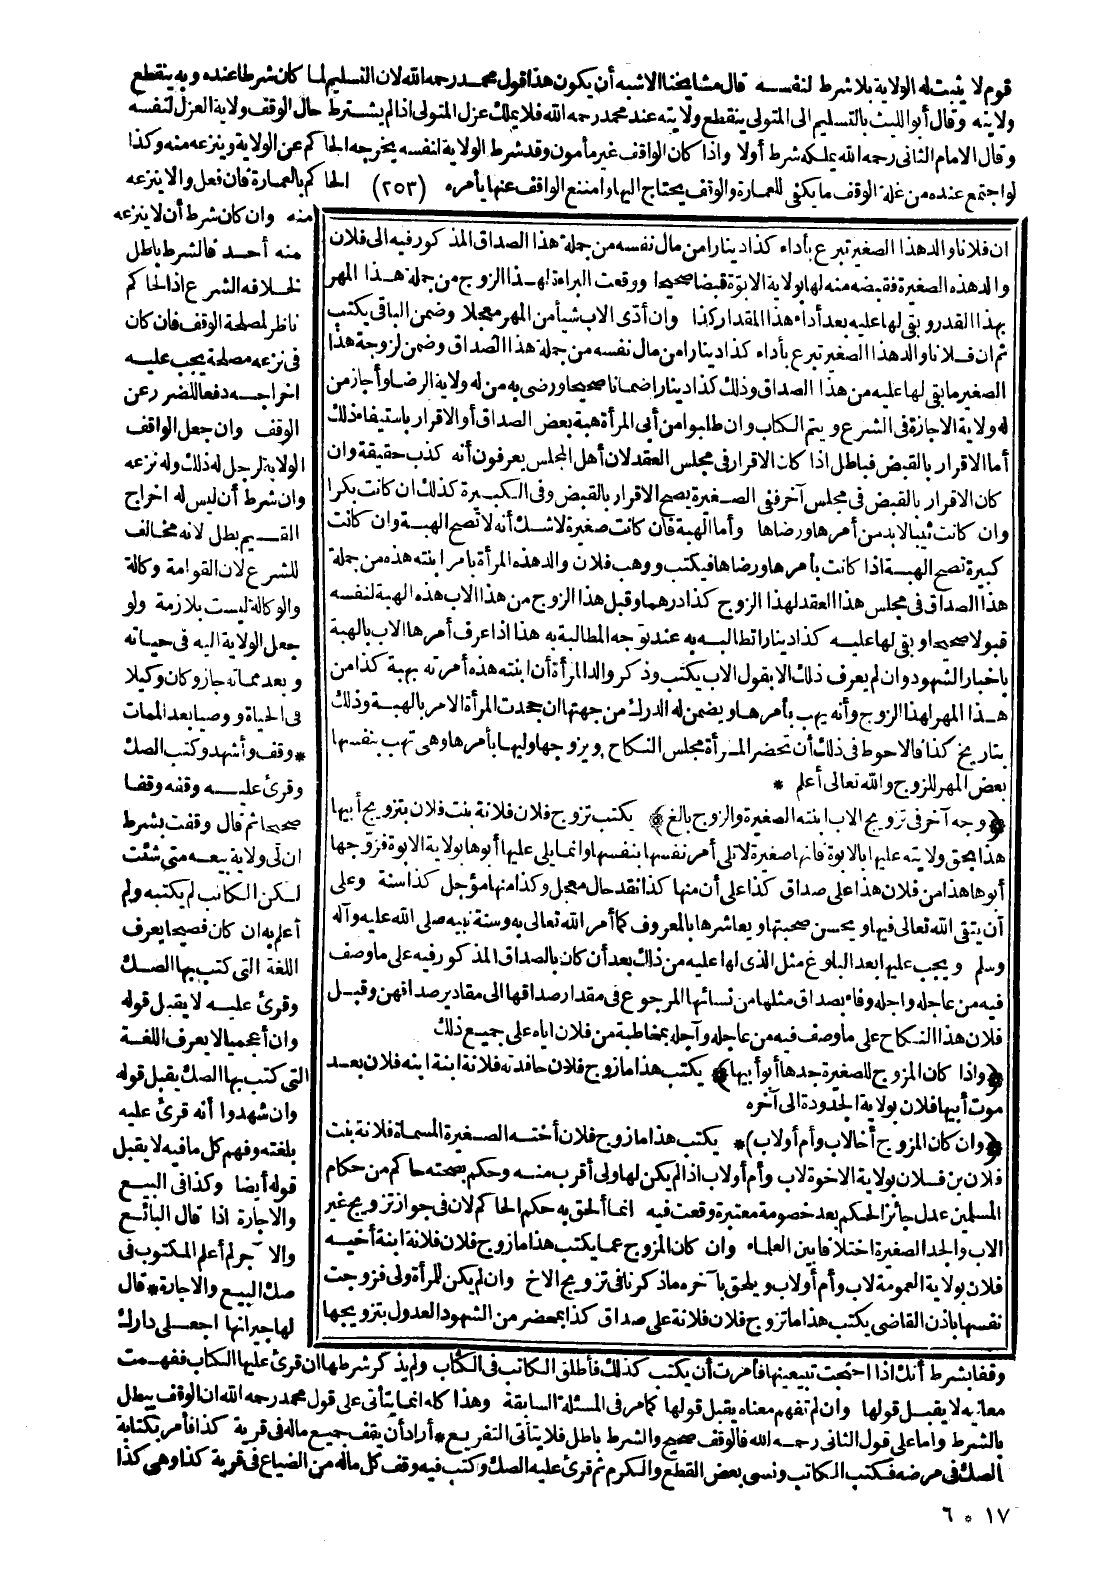 قوم لا يثبت له الولاية بلا شرط لنفسه قال مشايخنا الاشبه أن يكون هذا قول محمد رحمه الله لان التسليم لما كان شرطا عنده وبه ينقطع
ولايته وقال أبو الليث بالتسليم الى المتولى ينقطع ولايته عند محمد رحمه الله فلا يملك عزل المتولى اذا لم يشترط حال الوقف ولاية العزل لنفسه
وقال الامام الثانى رحمه الله يملكه شرط أولا واذا كان الواقف غير مأمون وقد شرط الولاية لنفسه يخرجه الحاكم عن الولاية وينزعه منه وكذا
لو اجتمع عنده من غلة الوقف ما يكفى للعمارة والوقف يحتاج اليها وامتنع الواقف عنها يأمره (٢٥٣) الحاكم بالعمارة فان فعل والا ينزعه
منه وان كان شرط أن لا ينزعه
منه أحد فالشرط باطل
لخلافه الشرع اذ الحاكم
ناظر لمصلحة الوقف فان كان
فى نزعه مصلحة يجب عليه
اخراجه دفعا للضرر عن
الوقف وان جعل الواقف
الولاية لرجل له ذلك وله نزعه
وان شرط أن ليس له اخراج
القيم بطل لانه مخالف
للشرع لان القوامة وكالة
والوكالة ليست بلازمة ولو
جعل الولاية اليه فى حياته
وبعد مماته جاز وكان وكيلا
فى الحياة ووصيا بعد الممات
* وقف وأشهد وكتب الصك
وقرئ عليه وقفه وقفا
صحيحا ثم قال وقفت بشرط
ان لى ولاية بيعه متى شئت
لكن الكاتب لم يكتبه ولم
أعلم به ان كان فصيحا يعرف
اللغة التى كتب بها الصك
وقرئ عليه لا يقبل قوله
وان أعجميا لا يعرف اللغة
التى كتب بها الصك يقبل قوله
وان شهدوا أنه قرئ عليه
بلغته وفهم كل ما فيه لا يقبل
قوله أيضا وكذا فى البيع
والاجارة اذا قال البائع
والآجر لم أعلم المكتوب فى
صك البيع والاجارة * قال
لها جيرانها اجعلى دارك
ان فلانا والد هذا الصغير تبرع بأداء كذا دينارا من مال نفسه من جملة هذا الصداق المذكور فيه الى فلان
والد هذه الصغيرة فقبضه منه لها بولاية الابوة قبضا صحيحا ووقعت البراءة لهذا الزوج من جملة هذا المهر
بهذا القدر وبقى لها عليه بعد أداء هذا المقدار كذا وان أدّى الاب شيأ من المهر معجلا وضمن الباقى يكتب
ثم ان فلانا والد هذا الصغير تبرع بأداء كذا دينارا من مال نفسه من جملة هذا الصداق وضمن لزوجة هذا
الصغير ما بقى لها عليه من هذا الصداق وذلك كذا دينارا ضمانا صحيحا ورضى به من له ولاية الرضا وأجاز من
له ولاية الاجازة فى الشرع ويتم الكتاب وان طلبوا من أبى المرأة هبة بعض الصداق أو الاقرار باستيفاء ذلك
أما الاقرار بالقبض فباطل اذا كان الاقرار فى مجلس العقد لان أهل المجلس يعرفون أنه كذب حقيقة وان
كان الاقرار بالقبض فى مجلس آخر ففى الصغيرة يصح الاقرار بالقبض وفى الكبيرة كذلك ان كانت بكرا
وان كانت ثيبا لا بد من أمرها ورضاها وأما الهبة فان كانت صغيرة لا شك أنه لا تصح الهبة وان كانت
كبيرة تصح الهبة اذا كانت بأمرها ورضاها فيكتب ووهب فلان والد هذه المرأة بامر ابنته هذه من جملة
هذا الصداق فى مجلس هذا العقد لهذا الزوج كذا درهما وقبل هذا الزوج من هذا الاب هذه الهبة لنفسه
قبولا صحيحا وبقى لها عليه كذا دينارا تطالبه به عند توجه المطالبة به هذا اذا عرف أمرها الاب بالهبة
باخبار الشهود وان لم يعرف ذلك الا بقول الاب يكتب وذكر والد المرأة أن ابنته هذه أمرته بهبة كذا من
هذا المهر لهذا الزوج وأنه يهب بأمرها ويضمن له الدرك من جهتها ان جحدت المرأة الامر بالهبة وذلك
بتاريخ كذا فالاحوط فى ذلك أن تحضر المرأة مجلس النكاح ويزوجها وليها بأمرها وهى تهب بنفسها
بعض المهر للزوج والله تعالى أعلم *
﴿وجه آخر فى تزويج الاب ابنته الصغيرة والزوج بالغ﴾ يكتب تزوج فلان فلانة بنت فلان بتزويج أبيها
هذا بحق ولايته عليها بالابوة فانها صغيرة لا تلى أمر نفسها بنفسها وانما يلى عليها أبوها بولاية الابوة فزوجها
أبوها هذا من فلان هذا على صداق كذا على أن منها كذا نقد حال معجل وكذا منها مؤجل كذا سنة وعلى
أن يتقى الله تعالى فيها ويحسن صحبتها ويعاشرها بالمعروف كما أمر الله تعالى به وسنة نبيه صلى الله عليه وآله
وسلم ويجب عليها بعد البلوغ مثل الذى لها عليه من ذلك بعد أن كان بالصداق المذكور فيه على ما وصف
فيه من عاجله وآجله وفاء بصداق مثلها من نسائها المرجوع فى مقدار صداقها الى مقادير صداقهن وقبل
فلان هذا النكاح على ما وصف فيه من عاجله وآجله بمخاطبة من فلان اياه على جميع ذلك
﴿واذا كان المزوج للصغيرة جدها أبو أبيها﴾ يكتب هذا ما زوج فلان حافدته فلانة ابنة ابنه فلان بعد
موت أبيها فلان بولاية الجدودة الى آخره
﴿وان كان المزوج أخا لاب وأم أو لاب﴾ * يكتب هذا ما زوج فلان أخته الصغيرة المسماة فلانة بنت
فلان بن فلان بولاية الاخوة لاب وأم أو لاب اذا لم يكن لها ولى أقرب منه وحكم بصحته حاكم من حكام
المسلمين عدل جائز الحكم بعد خصومة معتبرة وقعت فيه انما ألحق به حكم الحاكم لان فى جواز تزويج غير
الاب والجد الصغيرة اختلافا بين العلماء وان كان المزوج عما يكتب هذا ما زوج فلان فلانة ابنة أخيه
فلان بولاية العمومة لاب وأم أو لاب ويلحق بآخره ما ذكرنا فى تزويج الاخ وان لم يكن للمرأة ولى فزوجت
نفسها باذن القاضى يكتب هذا ما تزوج فلان فلانة على صداق كذا بمحضر من الشهود العدول بتزويجها
وقفا بشرط أنك اذا احتجت تبيعينها فأمرت أن يكتب كذلك فأطلق الكاتب فى الكتاب ولم يذكر شرطها ان قرئ عليها الكتاب ففهمت
معانيه لا يقبل قولها وان لم تفهم معناه يقبل قولها كما مر فى المسئلة السابقة وهذا كله انما يتأتى على قول محمد رحمه الله ان الوقف يبطل
بالشرط واما على قول الثانى رحمه الله فالوقف صحيح والشرط باطل فلا يتأتى التفريع * أراد أن يقف جميع ماله فى قرية كذا فأمر بكتابة
الصك فى مرضه فكتب الكاتب ونسى بعض القطع والكرم ثم قرئ عليه الصك وكتب فيه وقف كل ماله من الضياع فى قرية كذا وهى كذا
٦ * ١٧